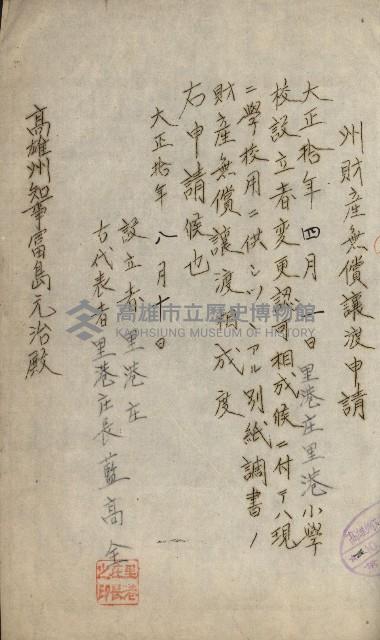 州財産無償讓渡申請
大正拾年四月一日里港庄里港小學
校設立者変更認可相成候ニ付テハ現
ニ學校用ニ供シツヽアル別紙調書ノ
財産無償讓渡相成度
右申請候也
大正拾年八月十日
設立者里港庄
右代表者里港庄長藍高全
高雄州知事富島元治殿
里港
庄長
之印
高雄市立歷史博物館
KAOHSIUNG MUSEUM OF HISTORY